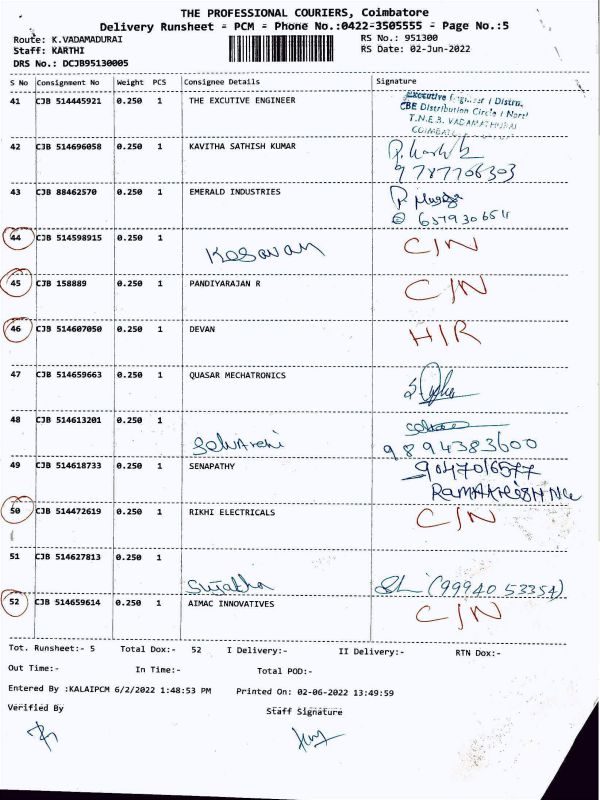 THE PROFESSIONAL COURIERS, Coimbatore
Delivery Runsheet - PCM - Phone No.:0422-3505555 - Page No.:5
Route: K.VADAMADURAI RS No.: 951300
Staff: KARTHI RS Date: 02-Jun-2022
DRS No.: DCJB95130005
S No Consignment No Weight PCS Consignee Details Signature
41 CJB 514445921 0.250 1 THE EXCUTIVE ENGINEER
Executive Engineer / Distrn.
CBE Distribution Circle / North
T.N.E.B. VADAMATHURAI
42 CJB 514696058 0.250 1 KAVITHA SATHISH KUMAR
9787706303
43 CJB 88462570 0.250 1 EMERALD INDUSTRIES
44 CJB 514598915 0.250 1 Kesavan C/N
45 CJB 158889 0.250 1 PANDIYARAJAN R C/N
46 CJB 514607050 0.250 1 DEVAN H/R
47 CJB 514659663 0.250 1 QUASAR MECHATRONICS
48 CJB 514613201 0.250 1
9894383600
49 CJB 514618733 0.250 1 SENAPATHY 9047016577
50 CJB 514472619 0.250 1 RIKHI ELECTRICALS C/N
51 CJB 514627813 0.250 1
Sujatha (99940 53354)
52 CJB 514659614 0.250 1 AIMAC INNOVATIVES C/N
Tot. Runsheet:- 5 Total Dox:- 52 I Delivery:- II Delivery:- RTN Dox:-
Out Time:- In Time:- Total POD:-
Entered By :KALAIPCM 6/2/2022 1:48:53 PM Printed On: 02-06-2022 13:49:59
Verified By Staff Signature